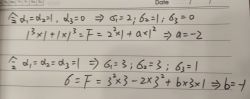 Date
令 α₁=α₂=1, α₃=0 ⇒ σ₁=2; σ₂=1; σ₃=0
1³×1+1×1³=F=2²×1+a×1² ⇒ a=-2
令 α₁=α₂=α₃=1 ⇒ σ₁=3; σ₂=3; σ₃=1
6=F=3²×3-2×3²+b×3×1 ⇒ b=-1